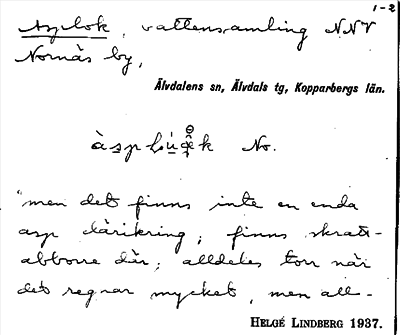 1-2
Asplok, vattensamling NNV
Nornäs by,
Älvdalens sn, Älvdals tg, Kopparbergs län.
No.
"men det finns inte en enda
asp däri kring, finns skratt-
abborre där; alldeles torr när
det regnar mycket, men all-
HELGE LINDBERG 1937.